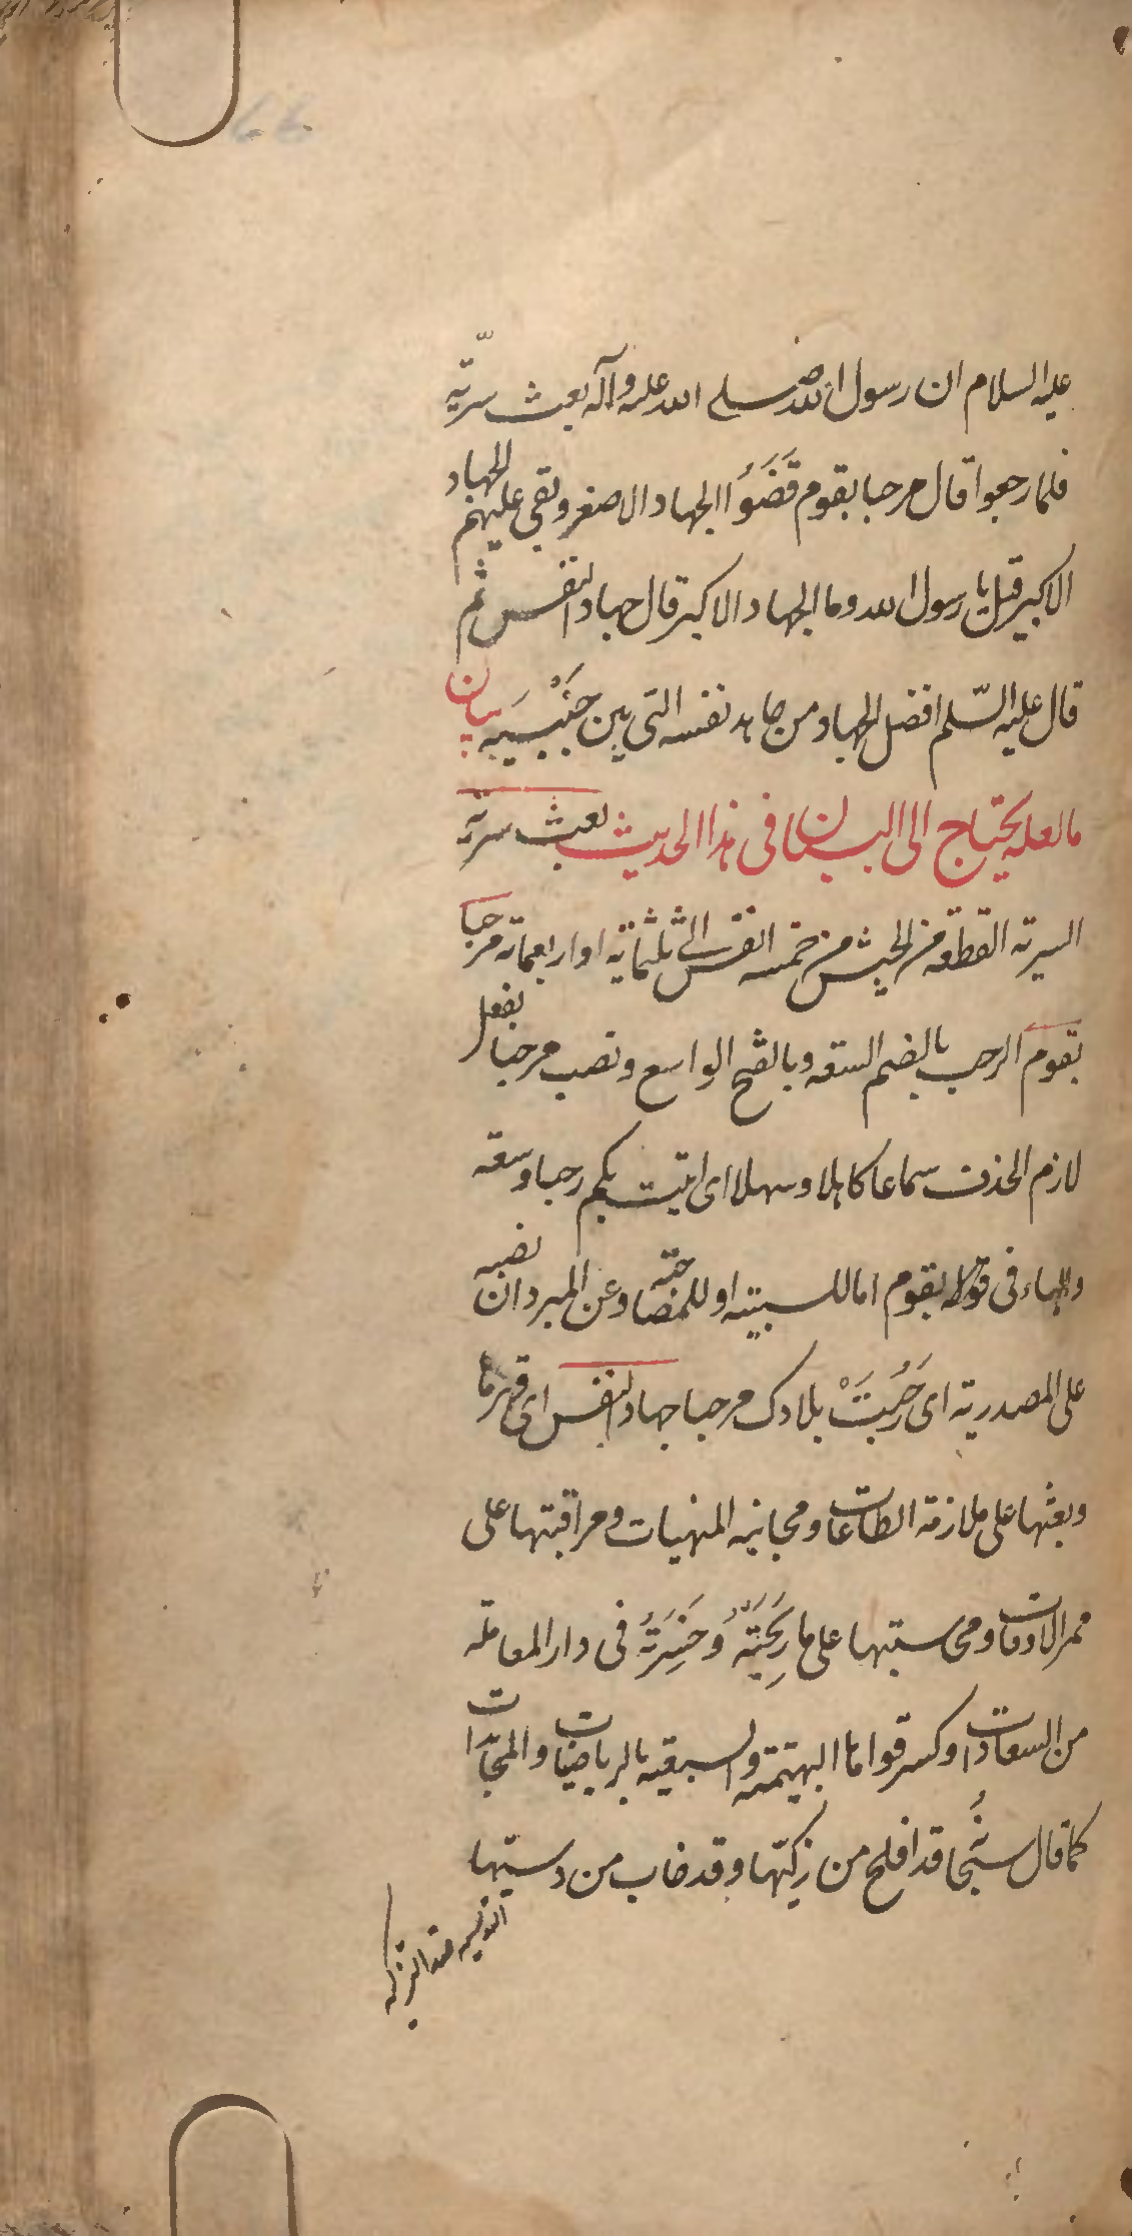 عليه السلام ان رسول الله صلى الله عليه وآله بعث سريّة
فلما رجعوا قال مرحبا بقوم قَضَوُا الجهاد الاصغر وبقى عليهم الجهاد
الاكبر قيل يا رسول الله وما الجهاد الاكبر قال جهاد النفس ثم
قال عليه السّلم افضل الجهاد من جاهد نفسه التى بين جَنْبَيه بيان
ما لعله يحتاج الى البيان فى هذا الحديث بعث سرية
السرية القطعة من الجيش من خمسة انفس الى ثلثمائة او اربعمائة مرحبا
بقوم الرحب بالضم السعة وبالفتح الواسع ونصب مرحبا بفعل
لازم الحذف سماعا كاهلا وسهلا اى اتيت بكم رحبا وسعة
والباء فى قوله بقوم اما للسببية او للمصاحبة وعن المبرد ان نصبه
على المصدرية اى رَحُبَتْ بلادك مرحبا جهاد النفس اى قهرها
وبعثها على ملازمة الطاعات ومجانبة المنهيات ومراقبتها على
ممر الاوقات ومحاسبتها على ما رَبِحَتْهُ وَخَسِرَتْهُ فى دار المعاملة
من السعادات وكسر قواها البهيمية والسبعية بالرياضات والمجاهدات
كما قال سبحانه قد افلح من زكّيها وقد خاب من دسّيها